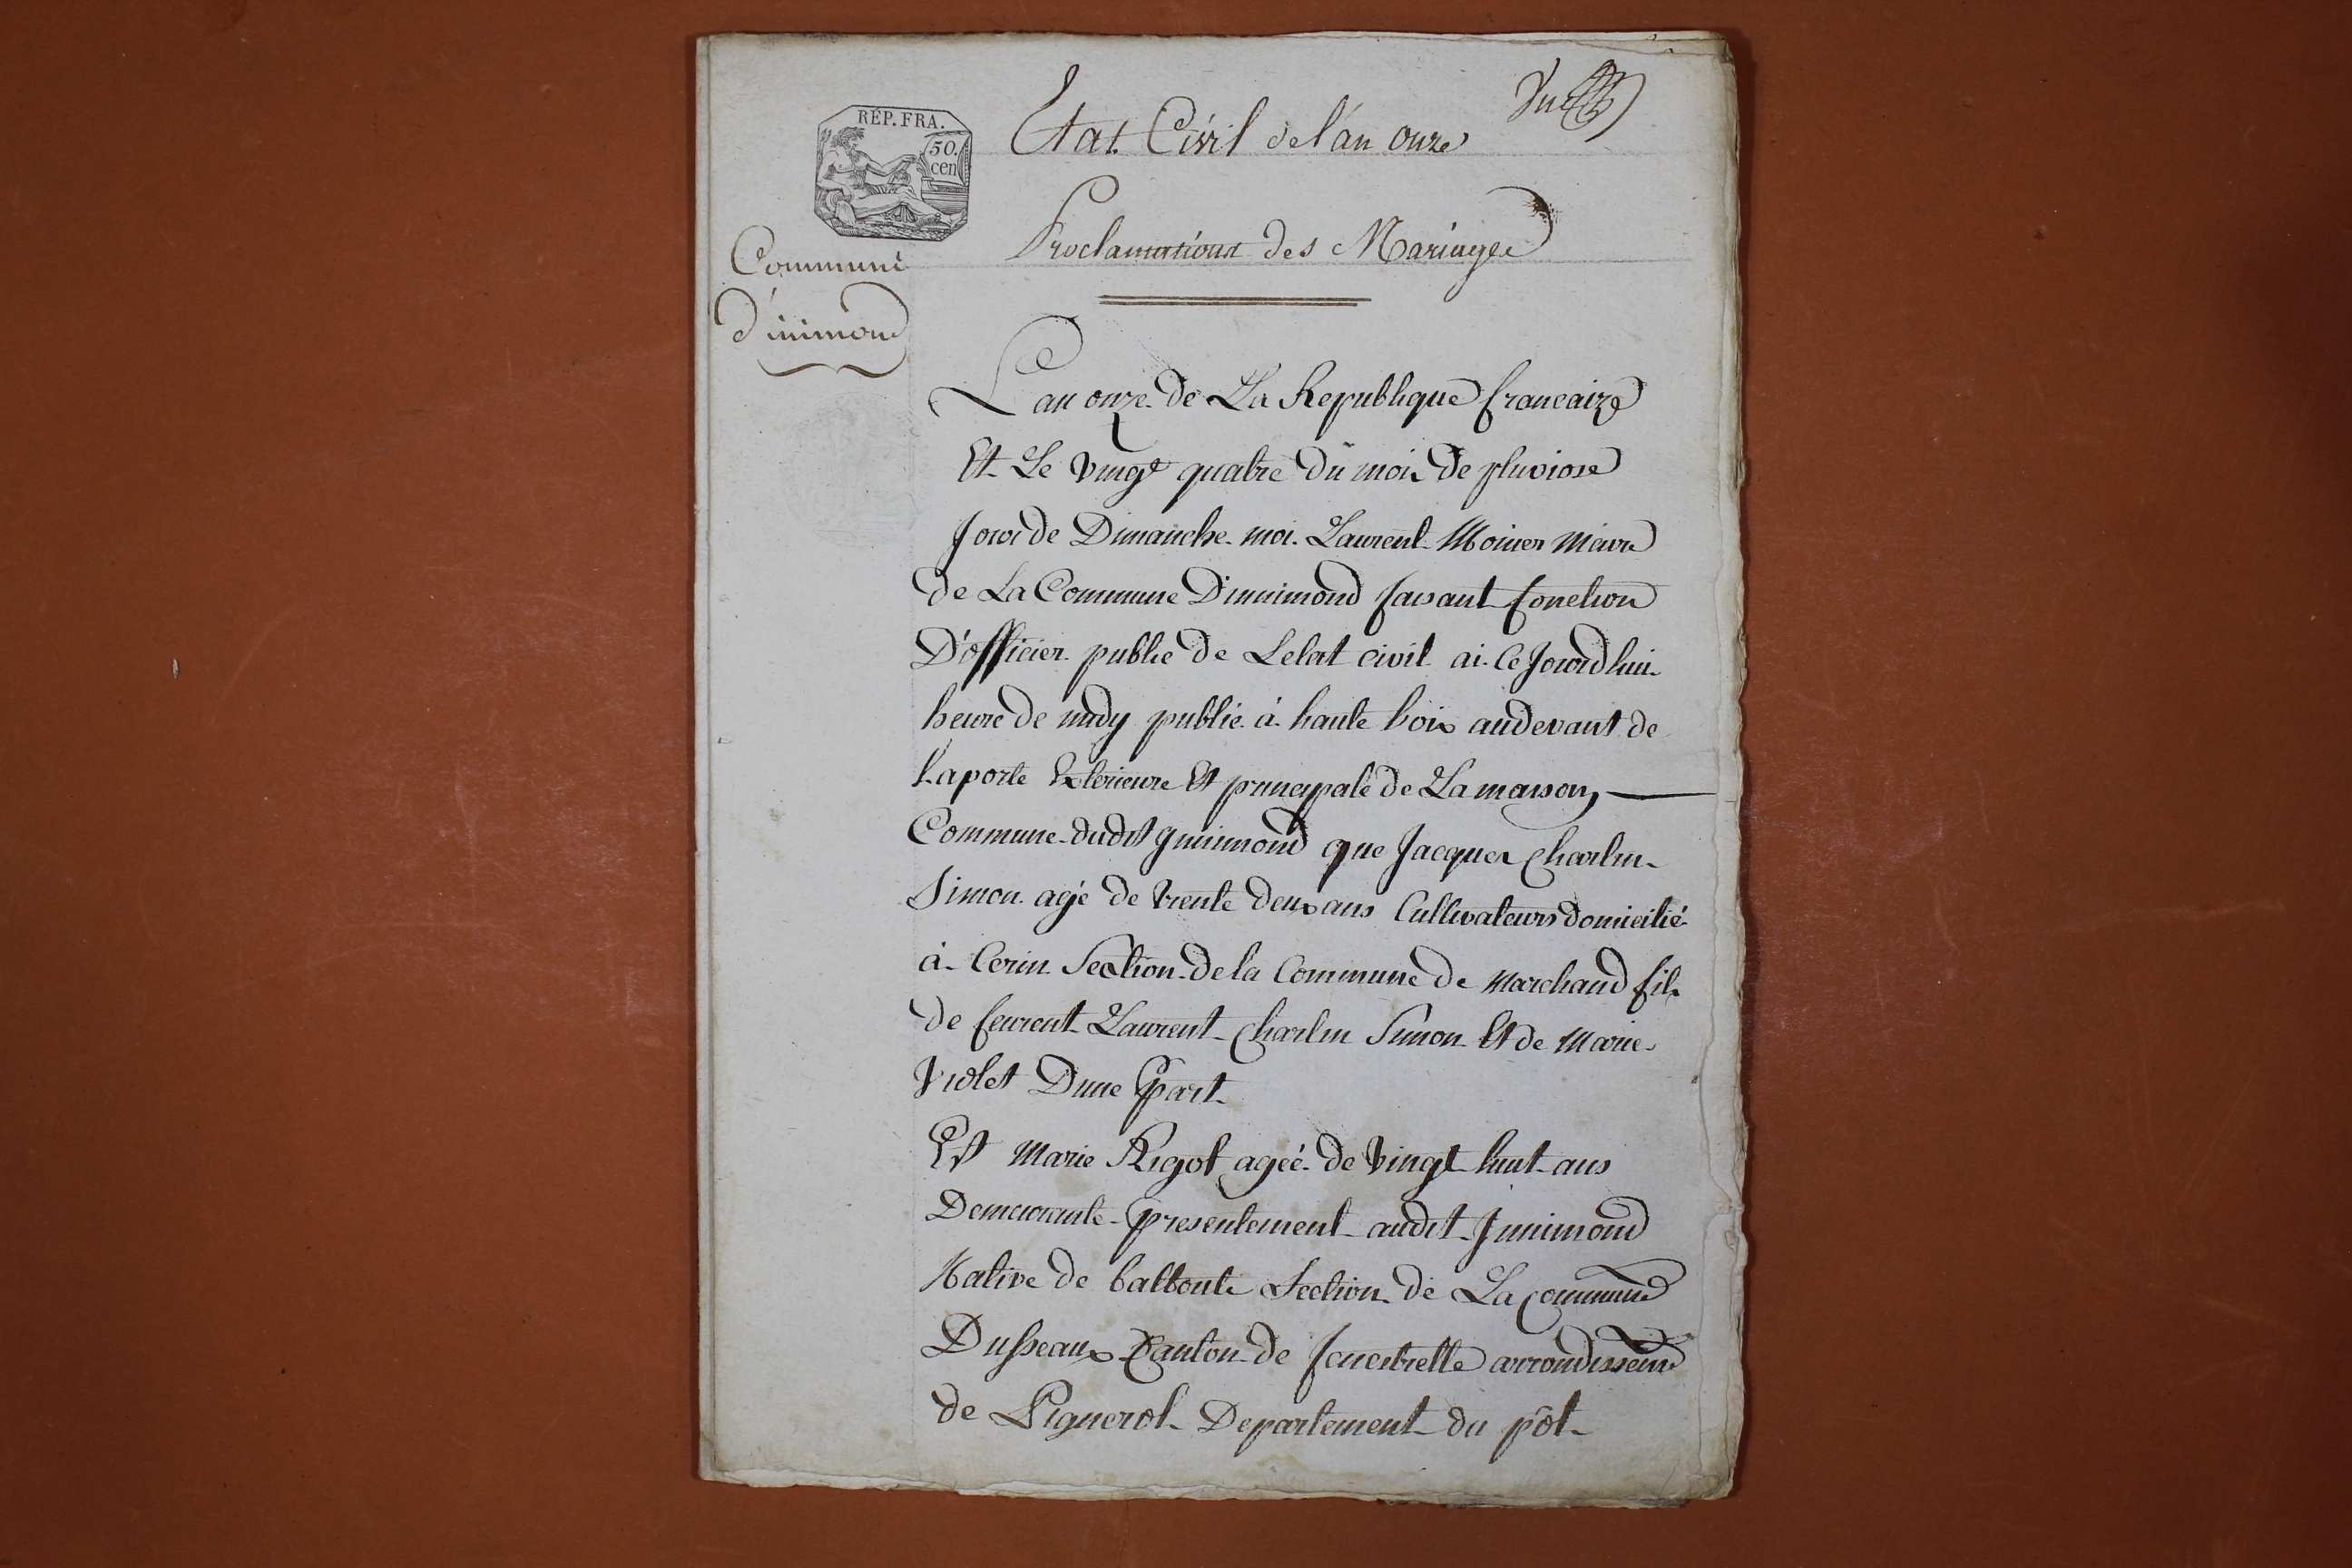 RÉP. FRA.
50.
cen
Etat Civil de l'an onze
Proclamations des Mariages
Commune
d'inimond
L'an onze de La Republique francaize
Et Le vingt quatre du mois de pluviose
Jour de Dimanche moi Laurent Moiner Maire
de La Commune Dinnimond faisant fonction
D'officier public de Letat civil ai ce Jourdhui
heure de midy publié à haute voix audevant de
La porte Exterieure Et principale de La maison
Commune dudit Jnnimond que Jacques Charlin
Simon agé de trente deux ans Cultivateurs domicilié
à Cerin Section de la Commune de Marchand fils
de feu Laurent Charlin Simon Et de Marie
Violet Dune Part
Et Marie Rigot ageé de vingt huit ans
Demeurante presentement audit Jnnimond
Native de balboute Section de La Commune
Dusseaux Canton de fenestrelle arrondissement
de Pignerol Departement du pôt